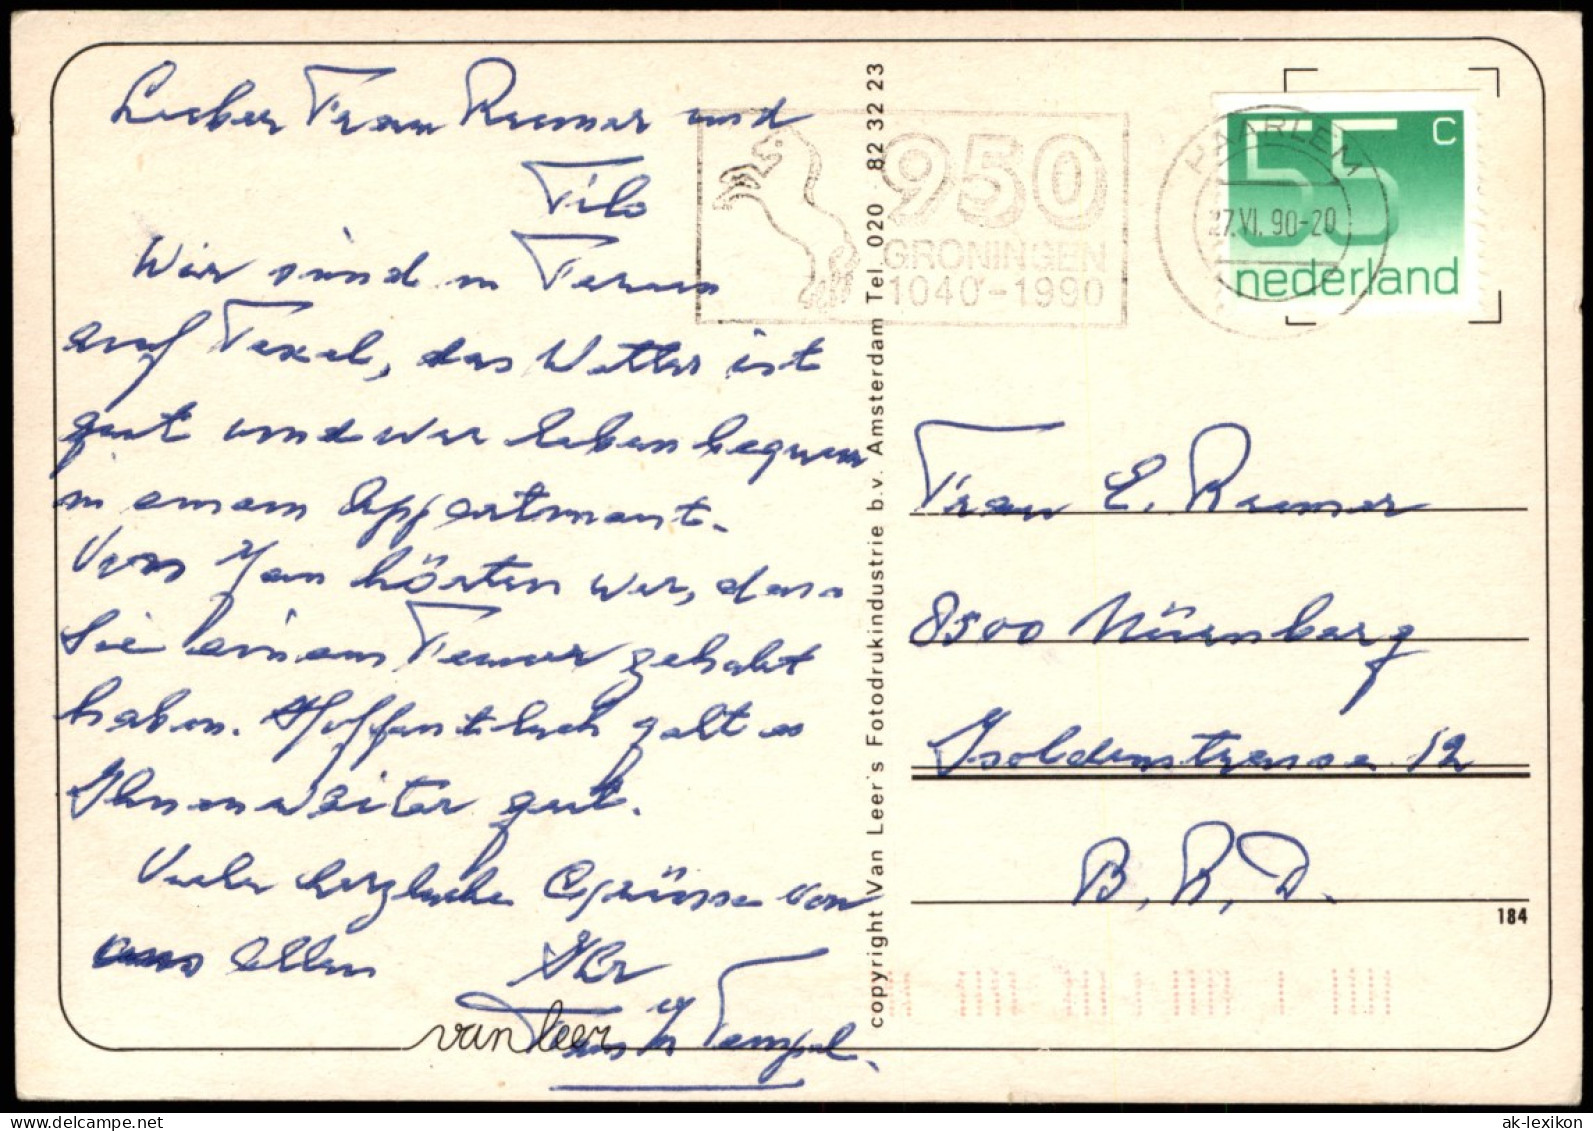 Lieber Frau Raemer und
Tilo
Wir sind in Ferien
auf Texel, das Wetter ist
gut und wir leben bequem
in einem Appartment.
Von Jan hörten wir, dass
Sie einen Femur gehabt
haben. Hoffentlich geht es
Ihnen weiter gut.
Viele herzliche Grüsse von
uns allen Ihr
Tempel.
van leer
copyright Van Leer's Fotodrukindustrie b.v. Amsterdam Tel. 020 - 82 32 23
950
GRONINGEN
1040-1990
HAARLEM
27.VI. 90-20
55 c
nederland
Frau E. Raemer
8500 Nürnberg
Isoldenstrasse 12
B.R.D.
184
ak-lexikon